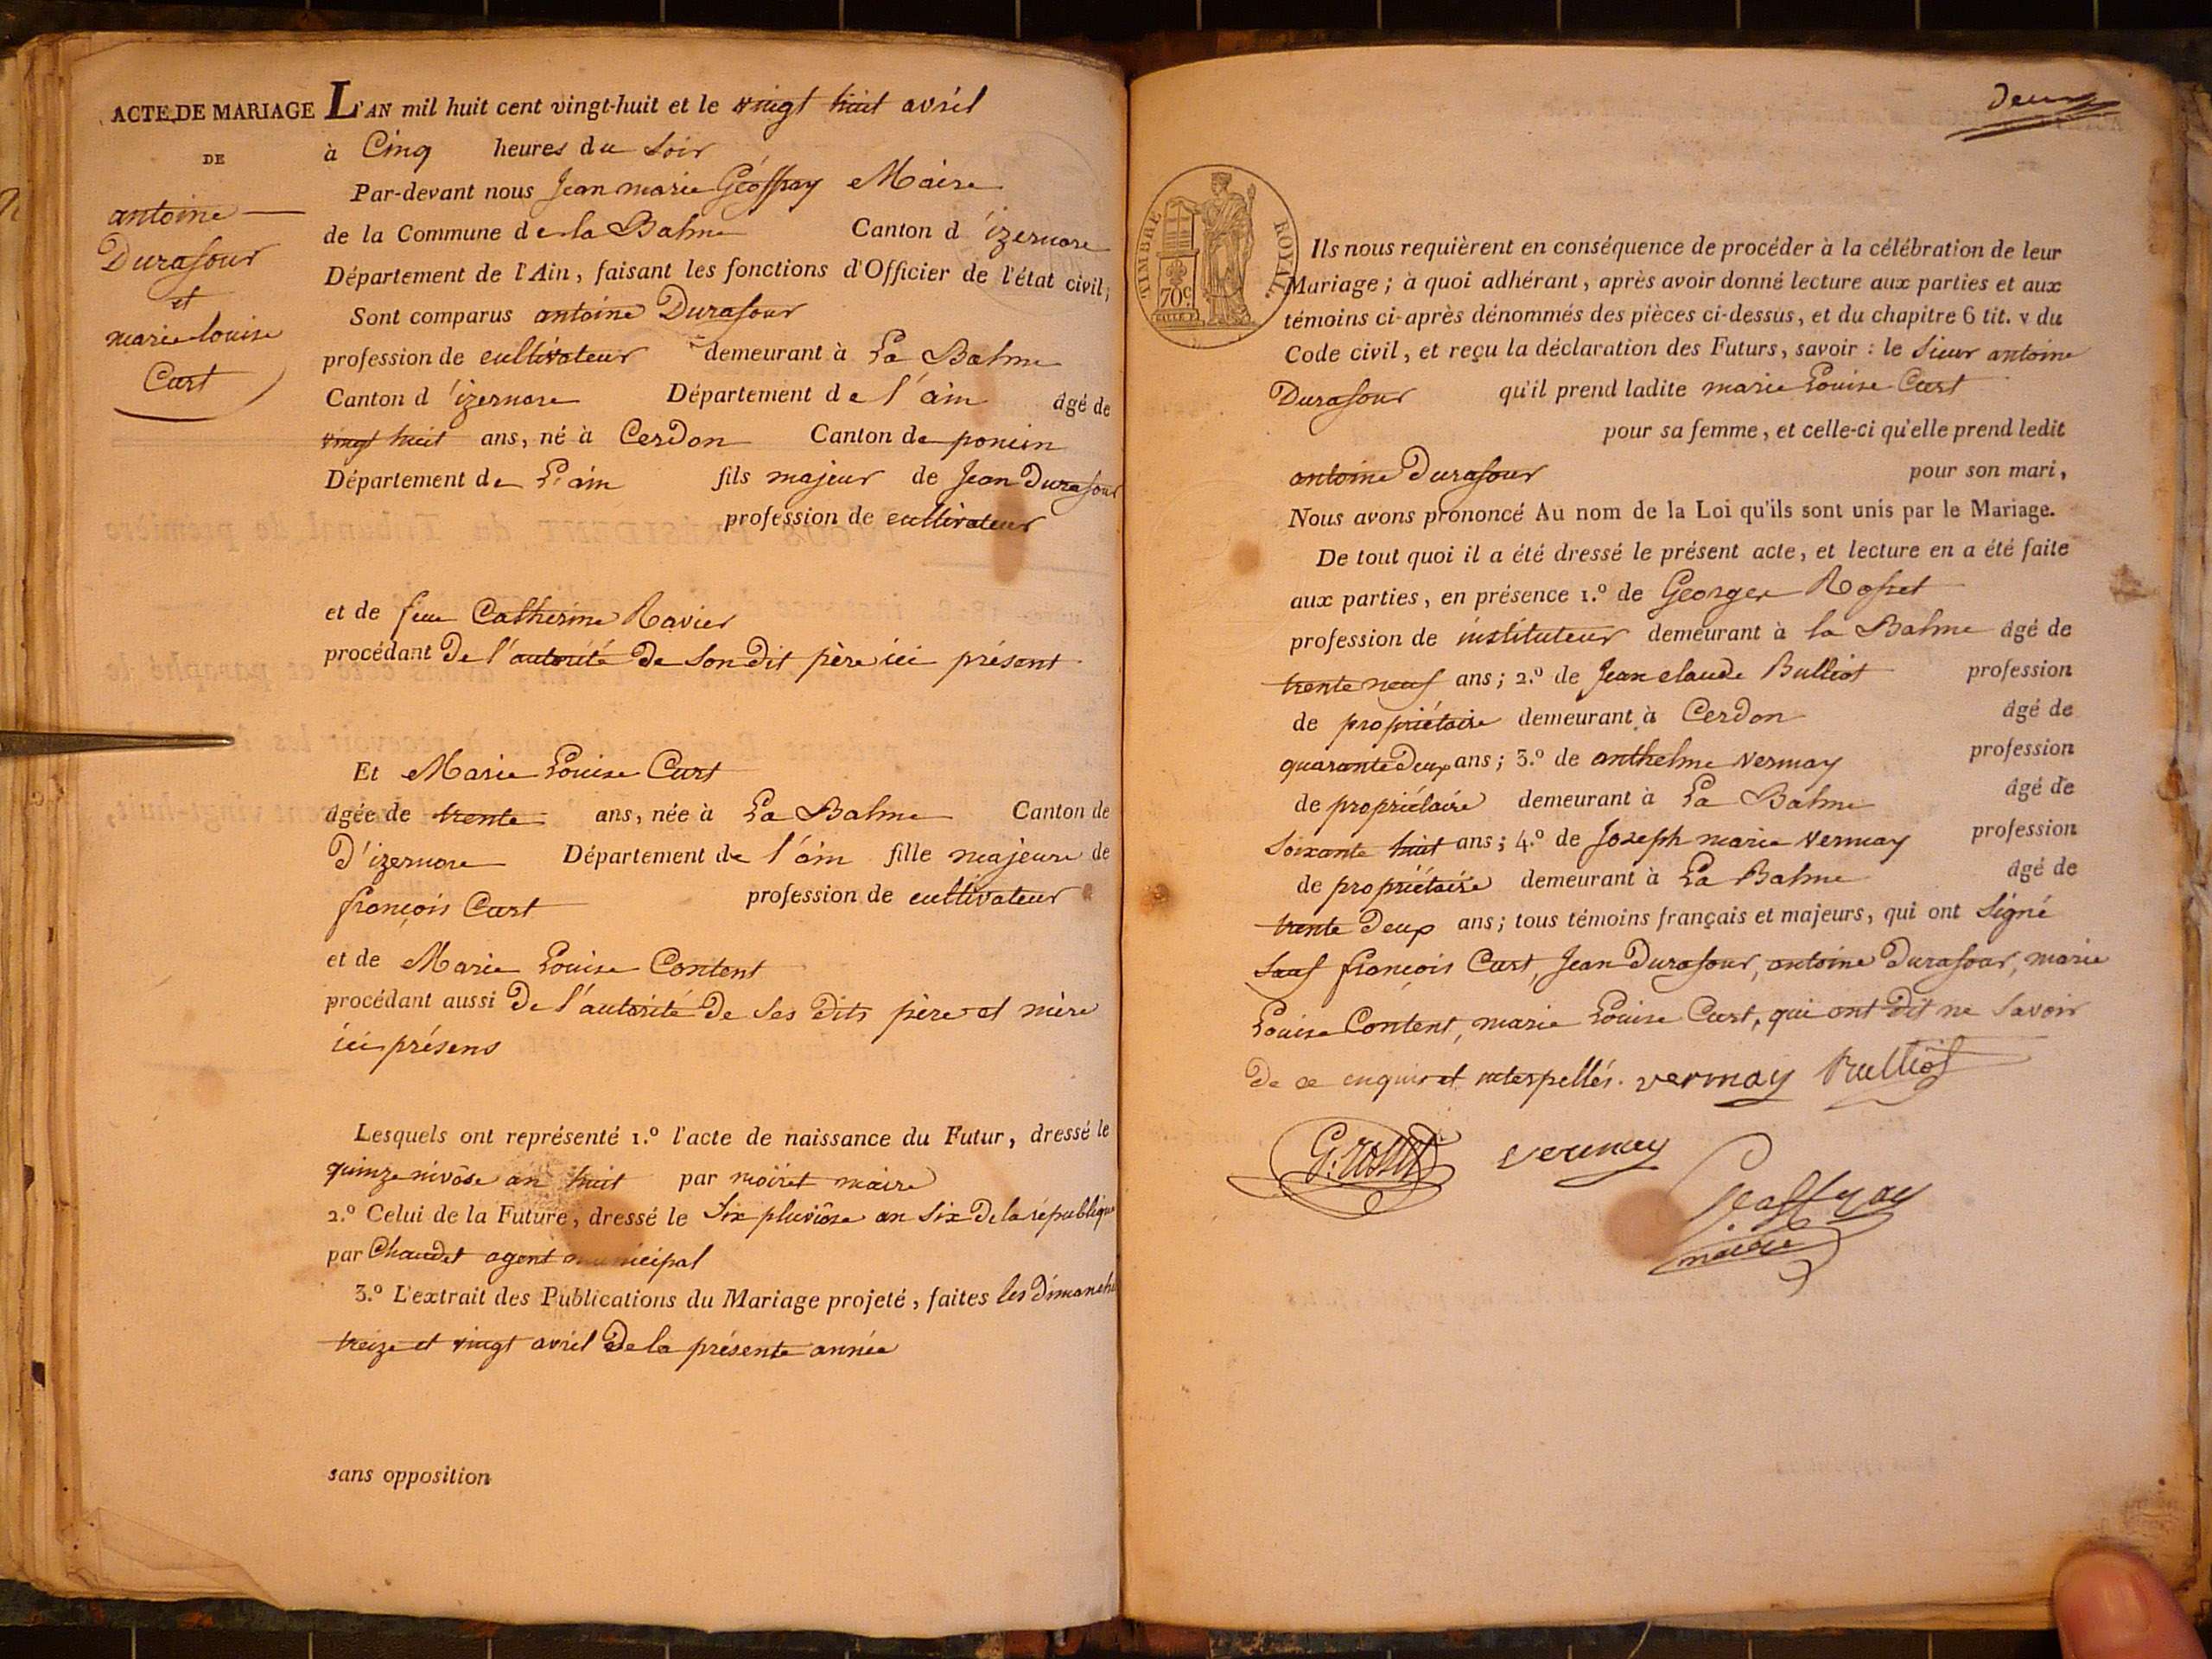 ACTE DE MARIAGE
DE
antoine
Durafour
et
marie louise
Curt
L'AN mil huit cent vingt-huit et le vingt huit avril
à Cinq heures du soir
Par-devant nous Jean marie Géoffray Maire
de la Commune de la Balme Canton d'izernore
Département de l'Ain, faisant les fonctions d'Officier de l'état civil;
Sont comparus antoine Durafour
profession de cultivateur demeurant à La Balme
Canton d'izernore Département de l'ain âgé de
vingt huit ans, né à Cerdon Canton de poncin
Département de L'ain fils majeur de Jean Durafour
profession de cultivateur
et de feue Catherine Ravier
procédant De l'autorité De son dit père ici présent
Et Marie Louise Curt
âgée de trente ans, née à La Balme Canton de
D'izernore Département de l'ain fille majeure de
françois Curt profession de cultivateur
et de Marie Louise Content
procédant aussi De l'autorité De ses dits père et mère
ici présens
Lesquels ont représenté 1.º l'acte de naissance du Futur, dressé le
quinze nivôse an huit par moiret maire
2.º Celui de la Future, dressé le Six pluviôse an Six De la république
par Chaudet agent municipal
3.º L'extrait des Publications du Mariage projeté, faites les Dimanche
treize et vingt avril De la présente année
sans opposition
Deux
TIMBRE ROYAL.
70c
Ils nous requièrent en conséquence de procéder à la célébration de leur
Mariage; à quoi adhérant, après avoir donné lecture aux parties et aux
témoins ci-après dénommés des pièces ci-dessus, et du chapitre 6 tit. v du
Code civil, et reçu la déclaration des Futurs, savoir : le Sieur antoine
Durafour qu'il prend ladite marie Louise Curt
pour sa femme, et celle-ci qu'elle prend ledit
antoine Durafour pour son mari,
Nous avons prononcé Au nom de la Loi qu'ils sont unis par le Mariage.
De tout quoi il a été dressé le présent acte, et lecture en a été faite
aux parties, en présence 1.º de Georges Rosset
profession de instituteur demeurant à la Balme âgé de
trente neuf ans; 2.º de Jean claude Bulliot profession
de propriétaire demeurant à Cerdon âgé de
quarante Deux ans; 3.º de anthelme Vermay profession
de propriétaire demeurant à La Balme âgé de
Soixante huit ans; 4.º de Joseph marie Vermay profession
de propriétaire demeurant à La Balme âgé de
trente Deux ans; tous témoins français et majeurs, qui ont Signé
Sauf françois Curt, Jean Durafour, antoine Durafour, marie
Louise Content, marie Louise Curt, qui ont Dit ne Savoir
De ce enquis et interpellés. vermay Bulliot
G. Rosset vermay
Géoffray
maire